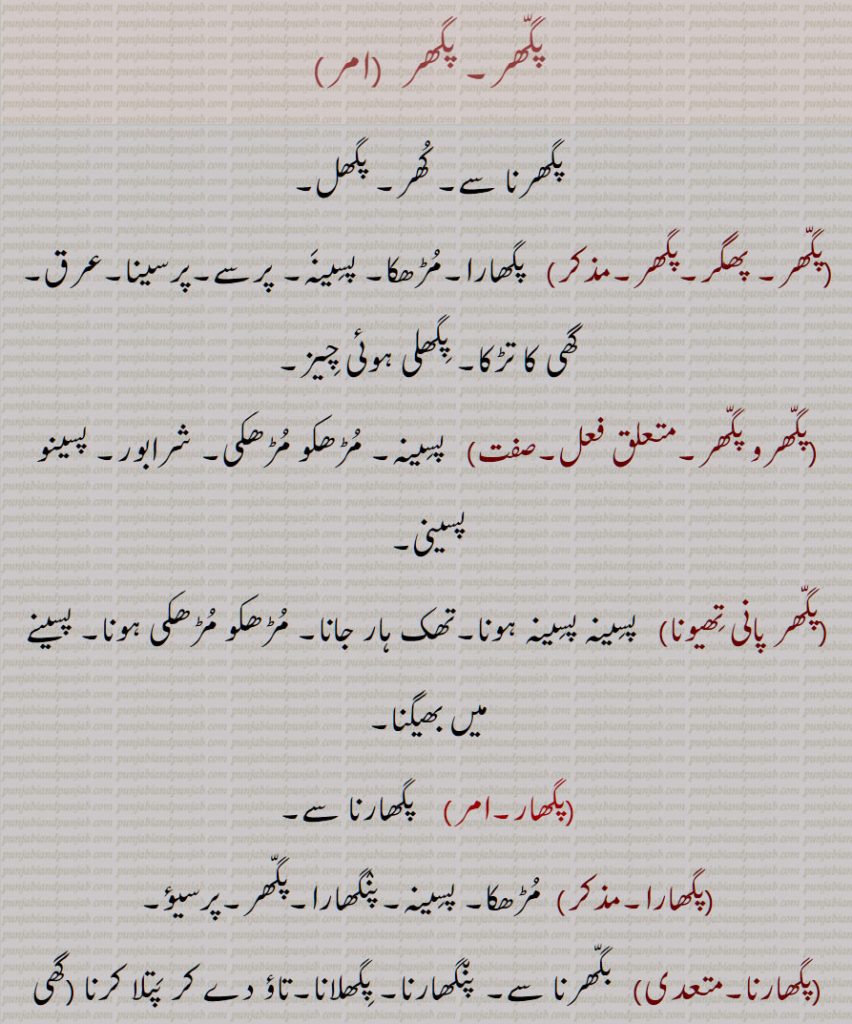 پگّھر ۔ پگھر (امر)
پگھرنا سے۔ کُھر ۔ پگھل۔
(پگّھر ۔ پھگر۔پگھر۔مذکر) پگھارا۔مُڑھکا۔ پسِینہَ۔ پرسے۔پرسینا۔عرق۔
گھی کا تڑکا۔ پِگھلی ہوئی چِیز ۔
(پگّھرو پگّھر ۔متعلق فعل۔صفت) پسِینہ۔ مُڑھکو مُڑھکی۔ شرابور۔ پسینو
پسینی۔
(پگّھر پانی تِھیونا) پسِینہ پسِینہ ہونا۔تھک ہار جانا۔ مُڑھکو مُڑھکی ہونا۔ پسینے
میں بھیگنا۔
(پگھار۔امر) پگھارنا سے۔
(پگھارا۔مذکر) مُڑھکا۔ پسِینہ۔پنْگھارا۔پگّھر۔پرسیوٗ۔
(پگھارنا۔متعدی) بگّھرنا سے۔ پنْگھارنا۔پِگھلانا۔تاؤ دے کر پَتلا کرنا (گھی
punjabiandpunjab.com